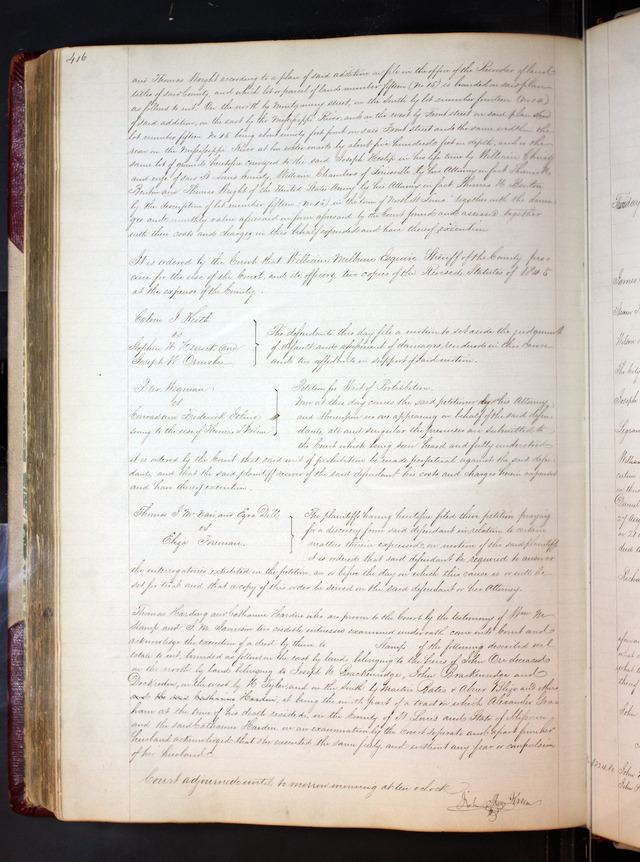 416
and Thomas Wright according to a plan of said addition on file in the office of the Recorder of land
titles of said County, and which lot or parcel of land number fifteen (No 15) is bounded on said plan
as follows to wit. On the north by Montgomery street, on the South by lot number fourteen (No 14)
of said addition, on the east by the Mississippi River, and on the west by Front street on said plan
lot number fifteen No 15 being about ninety feet front on said Front street and the same width in the
rear on the Mississippi River at low water mark by about five hundred feet in depth, and is the
same lot of ground heretofore conveyed to the said Joseph in his life time by William Christy
and wife of said St Louis County, William Chambers of Louisville by his Attorney in fact Thomas H.
Benton and Thomas Wright of the United States Army by his Attorney in fact Thomas H. Benton
by the description of lot number fifteen (No 15) in the town of North St Louis" together with the dama-
ges and monthly value aforesaid in form aforesaid by the Court found and assessed together
with their costs and charges in this behalf expended and have thereof execution.
It is ordered by the Court that William Milburn Esquire Sheriff of the County pro-
cure for the use of the Court, and its officers, two copies of the Revised Statutes of 1845
at the expense of the County.
Calvin J Keith
vs
Stephen H. and
Joseph W.
The defendants this day file a motion to set aside the judgment
of default and assessment of damages, rendered in this cause
and two affidavits in support of said motion.
Peter Wigman
vs
Conrad and Frederick
suing to the use of Thomas
Petition for Writ of Prohibition
Now at this day comes the said petitioner by his Attorney
and thereupon no one appearing on behalf of the said defen-
dants, all and singular the premises are submitted to
the Court which being seen heard and fully understood
it is ordered by the Court that said writ of prohibition be made perpetual against the said defen-
dants, and that the said plaintiff recover of the said defendant his costs and charges herein expended
and have thereof execution.
Thomas J and Ezra Dill
vs
Eliza Foreman
The plaintiffs having heretofore filed their petition praying
for a discovery from said defendant in relation to certain
matters therein expressed, on motion of the said plaintiffs
it is ordered that said defendant be required to answer
the interrogatories exhibited in the petition, on or before the day on which this cause is or will be
set for trial and that a copy of this order be served on the said defendant or his Attorney.
Thomas Hardin and Catharine Hardin who are proven to the Court by the testimony of Wm M
Stamp and J. M. two credible witnesses examined under oath come into Court and
acknowledge the execution of a deed by them to Stamps of the following described real
estate to wit, bounded as follows on the east by lands belonging to the heirs of John Orr deceased
on the north by lands belonging to Joseph W Brackenridge, John Brackenridge and
on the west by Tyler, and on the South by Martin Bates &
and the said Catharine Hardin, it being the ninth part of a tract on which Alexander Gra-
ham at the time of his death resided, in the County of St Louis and State of Missouri
and the said Catharine Hardin on an examination by the Court separate and apart from her
husband acknowledged that she executed the same freely, and without any fear or compulsion
of her husband.
Court adjourned until to morrow morning at ten o'clock